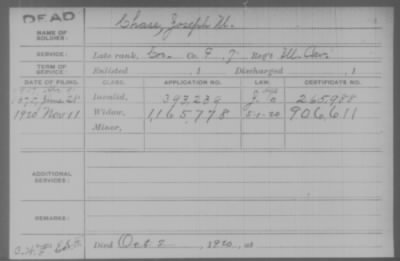 DEAD
NAME OF SOLDIER: Chase, Joseph W.
SERVICE: Late rank, Co. F, 7 Reg't Ill. Cav.
TERM OF SERVICE: Enlisted 1 Discharged 1
DATE OF FILING. CLASS. APPLICATION NO. LAW. CERTIFICATE NO.
Invalid, 393239 265988
1920 Nov 11 Widow, 1,165,778 5-1-20 906,611
Minor,
ADDITIONAL SERVICES:
REMARKS:
Died Oct. 2, 1920, at